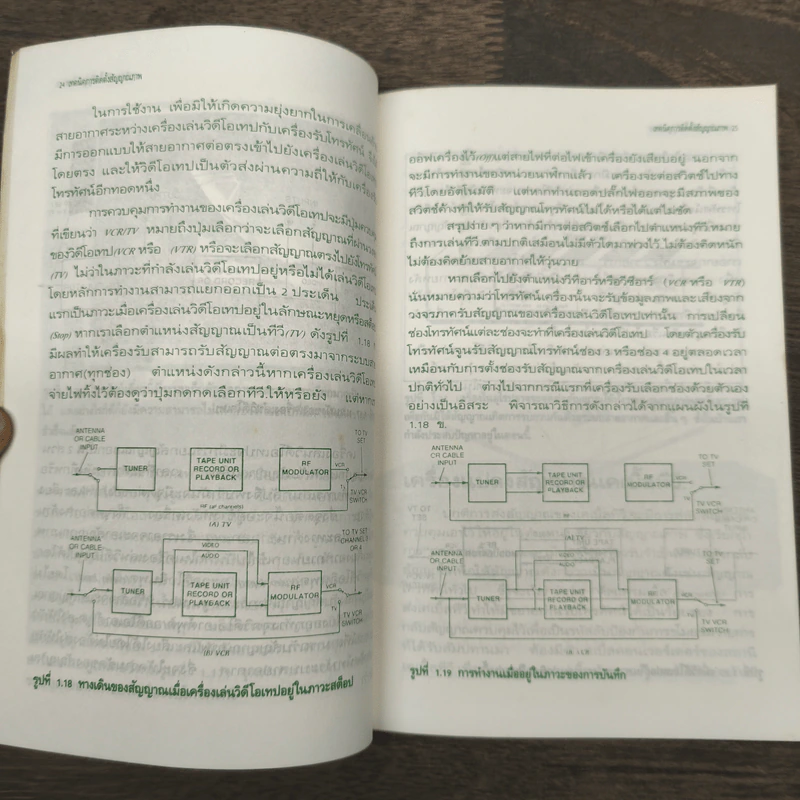 24 เทคนิคการติดตั้งสัญญาณภาพ
ในการใช้งาน เพื่อมิให้เกิดความยุ่งยากในการเคลื่อน
สายอากาศระหว่างเครื่องเล่นวิดีโอเทปกับเครื่องรับโทรทัศน์
มีการออกแบบให้สายอากาศต่อตรงเข้าไปยังเครื่องเล่นวิดีโอเทป
โดยตรง และให้วิดีโอเทปเป็นตัวส่งผ่านความถี่ให้กับเครื่อง
โทรทัศน์อีกทอดหนึ่ง
การควบคุมการทำงานของเครื่องเล่นวิดีโอเทปจะมีปุ่ม
ที่เขียนว่า VCR/TV หมายถึงปุ่มเลือกว่าจะเลือกสัญญาณที่ผ่าน
ของวิดีโอเทป/VCR หรือ (VTR) หรือจะเลือกสัญญาณตรงไปยังโทรทัศน์
(TV) ไม่ว่าในภาวะที่กำลังเล่นวิดีโอเทปอยู่หรือไม่ได้เล่นวิดีโอ
โดยหลักการทำงานสามารถแยกออกเป็น 2 ประเด็น
แรกเป็นภาวะเมื่อเครื่องเล่นวิดีโอเทปอยู่ในลักษณะหยุดหรือ
(Stop) หากเราเลือกตำแหน่งสัญญาณเป็นทีวี (TV) ดังรูปที่ 1.18
มีผลทำให้เครื่องรับสามารถรับสัญญาณต่อตรงมาจากระบบสาย
อากาศ(ทุกช่อง) ตำแหน่งดังกล่าวนี้หากเครื่องเล่นวิดีโอเทป
จ่ายไฟทิ้งไว้ต้องดูว่าปุ่มกดกดเลือกทีวีให้หรือยัง แต่หาก
ANTENNA
OR CABLE
INPUT
TUNER
TAPE UNIT
RECORD OR
PLAYBACK
RF
MODULATOR
VCR
TV
TO TV
SET
TV VCR
SWITCH
RF (all channels)
(A) TV
ANTENNA
OR CABLE
INPUT
VIDEO
AUDIO
TUNER
TAPE UNIT
RECORD OR
PLAYBACK
RF
MODULATOR
VCR
TV
TO TV SET
CHANNEL 3
OR 4
TV VCR
SWITCH
(B) VCR
รูปที่ 1.18 ทางเดินของสัญญาณเมื่อเครื่องเล่นวิดีโอเทปอยู่ในภาวะสต็อป
เทคนิคการติดตั้งสัญญาณภาพ
ออฟเครื่องไว้(Off)แต่สายไฟที่ต่อไฟเข้าเครื่องยังเสียบอยู่ นอกจาก
จะมีการทำงานของหน่วยนาฬิกาแล้ว เครื่องจะต่อสวิตช์ไปทาง
ทีวีโดยอัตโนมัติ แต่หากท่านถอดปลั๊กไฟออกจะมีสภาพของ
สวิตช์ค้างทำให้รับสัญญาณโทรทัศน์ไม่ได้หรือได้แต่ไม่ชัด
สรุปง่าย ๆ ว่าหากมีการต่อสวิตช์เลือกไปตำแหน่งทีวีหมาย
ถึงการเล่นทีวีตามปกติเสมือนไม่มีตัวใดมาพ่วงไว้ ไม่ต้องคิดหนัก
ไม่ต้องคิดย้ายสายอากาศให้วุ่นวาย
หากเลือกไปยังตำแหน่งวีทีอาร์หรือวีซีอาร์ (VCR หรือ VTR)
นั่นหมายความว่าโทรทัศน์เครื่องนั้นจะรับข้อมูลภาพและเสียงจาก
วงจรภาครับสัญญาณของเครื่องเล่นวิดีโอเทปเท่านั้น การเปลี่ยน
ช่องโทรทัศน์แต่ละช่องจะทำที่เครื่องเล่นวิดีโอเทป โดยตัวเครื่องรับ
โทรทัศน์จูนรับสัญญาณโทรทัศน์ช่อง 3 หรือช่อง 4 อยู่ตลอดเวลา
เหมือนกับการตั้งช่องรับสัญญาณจากเครื่องเล่นวิดีโอเทปในเวลา
ปกติทั่วไป ต่างไปจากกรณีแรกที่เครื่องรับเลือกช่องด้วยตัวเอง
อย่างเป็นอิสระ พิจารณาวิธีการดังกล่าวได้จากแผนผังในรูปที่
1.18 ข.
ANTENNA
OR CABLE
INPUT
TUNER
TAPE UNIT
RECORD OR
PLAYBACK
RF
MODULATOR
VCR
TV
TO TV
SET
TV VCR
SWITCH
RF
(A) TV
ANTENNA
OR CABLE
INPUT
VIDEO
AUDIO
TUNER
TAPE UNIT
RECORD OR
PLAYBACK
RF
MODULATOR
VCR
TV
TO TV
SET
TV VCR
SWITCH
รูปที่ 1.19 การทำงานเมื่ออยู่ในภาวะของการบันทึก